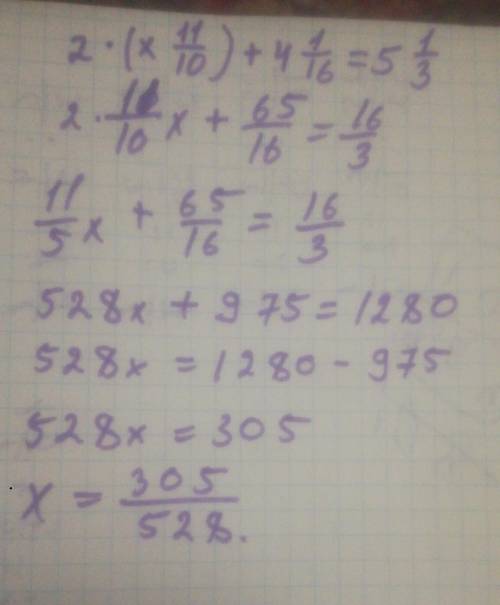 2 · (x 11/10) + 4 1/16 = 5 1/3
2 · 11/10 x + 65/16 = 16/3
11/5 x + 65/16 = 16/3
528x + 975 = 1280
528x = 1280 - 975
528x = 305
x = 305/528.